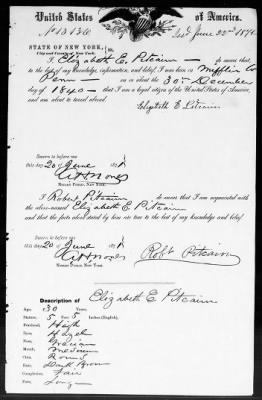 United States of America.
No 13136
Issd June 22nd 1871
STATE OF NEW YORK,
City and County of New York, } ss.
I, Elizabeth E. Pitcairn do swear that,
to the best of my knowledge, information, and belief, I was born in Mifflin Co
Penn on or about the 30th December
day of 1840 that I am a loyal citizen of the United States of America,
and am about to travel abroad.
Elizabeth E Pitcairn
Sworn to before me
this day 20 June 1871
Notary Public, New York.
I Robert Pitcairn do swear that I am acquainted with
the above-named Elizabeth E. Pitcairn
and that the facts above stated by are true to the best of my knowledge and belief.
Sworn to before me
this day 20 June 1871
Notary Public, New York.
Robt Pitcairn
Description of Elizabeth E. Pitcairn
Age: 30 Years.
Stature: 5 Feet 5 Inches (English).
Forehead, High
Eyes, Hazel
Nose, Grecian
Mouth, Medium
Chin, Round
Hair, Dark Brown
Complexion, Fair
Face, Long